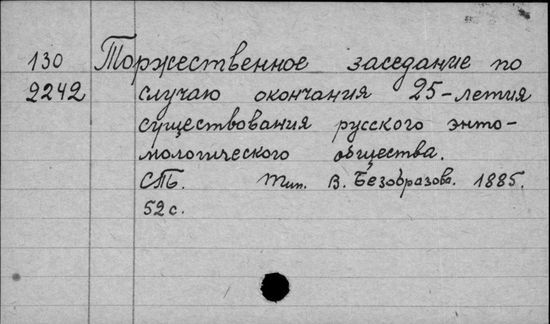 130 Торжественное заседание по
2242 случаю окончания 25-летия
существования русского энто-
мологического общества.
СПб. Тип. В. Безобразова. 1885.
52 с.